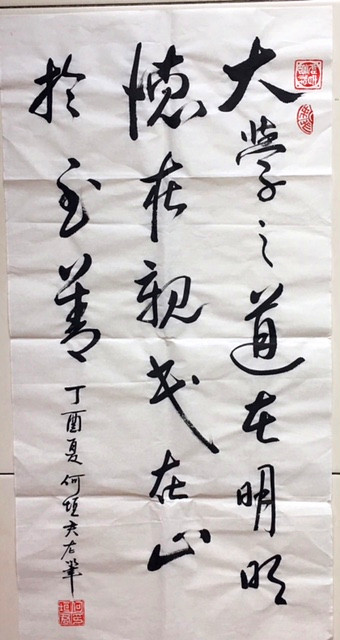 大學之道在明明
德在親民在止
於至善
丁酉夏何